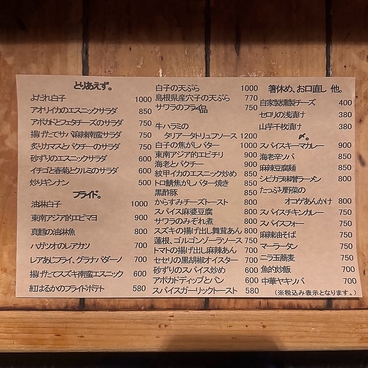 とりあえず。
よだれ白子 1000
アオリイカのエスニックサラダ 850
アボカドとフェタチーズのサラダ 750
揚げたてサバ麻辣南蛮サラダ 750
炙りカマスとパクチーのサラダ 750
砂ずりのエスニックサラダ 600
イチゴと春菊とクルミのサラダ 600
炒りギンナン 500
フライド。
油淋白子 1000
東南アジア的エビマヨ 900
真鱈の油淋魚 800
ハツオのレアカツ 700
レアあじフライ、グラナパダーノ 700
揚げたてスズキ南蛮エスニック 600
紅はるかのフライドポテト 580
白子の天ぷら 1000
島根県産穴子の天ぷら 770
サワラのフライ 900
牛ハラミの
タリアータトリュフソース 1200
白子の焦がしバター 1000
東南アジア的エビチリ 900
海老とパクチー 900
紋甲イカのエスニック炒め 850
トロ鯖焦がしバター焼き 850
黒酢豚 850
からすみチーズトースト 850
スパイス麻婆豆腐 800
サワラのみぞれ煮 800
スズキの揚げ出し舞茸あん 800
蓮根、ゴルゴンゾーラソース 750
トマトの揚げ出し麻辣あん 700
セセリの黒胡椒オイスター 700
砂ずりのスパイス炒め 600
アボカドディップとパン 600
スパイスガーリックトースト 580
箸休め、お口直し 他。
自家製燻製チーズ 400
セロリの浅漬け 380
山芋千枚漬け 380
〆。
スパイスキーマカレー 900
海老辛ソバ 850
麻辣豆腐麺 850
シビカラ味噌ラーメン 800
たっぷり野菜の
オマツあんかけ 800
スパイスチキンカレー 750
スパイスフォー 750
麻辣油そば 750
マーラータン 750
ニラ玉蕎麦 750
魚的炒飯 700
中華ヤキソバ 700
(※税込み表示となります。)